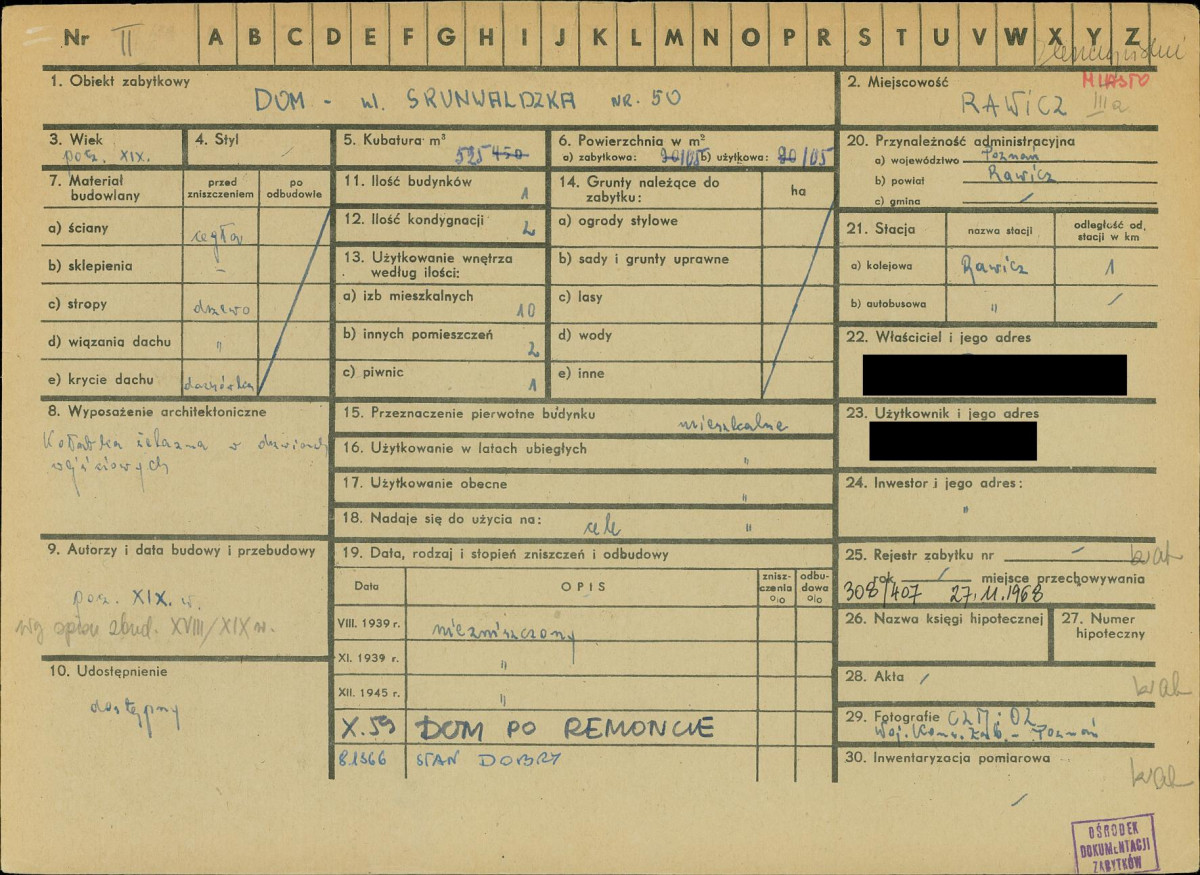 Nr II A B C D E F G H I J K L M N O P R S T U V W X Y Z
1. Obiekt zabytkowy
DOM - ul. GRUNWALDZKA NR. 50
2. Miejscowość
MIASTO
RAWICZ IIIa
3. Wiek
pocz. XIX.
4. Styl
/
5. Kubatura m³
525 450
6. Powierzchnia w m²
a) zabytkowa: 90/105 b) użytkowa: 90/105
20. Przynależność administracyjna
a) województwo Poznań
b) powiat Rawicz
c) gmina /
7. Materiał budowlany
przed zniszczeniem
po odbudowie
a) ściany cegła
b) sklepienia –
c) stropy drzewo
d) wiązania dachu "
e) krycie dachu dachówka
11. Ilość budynków 1
12. Ilość kondygnacji 2
13. Użytkowanie wnętrza według ilości:
a) izb mieszkalnych 10
b) innych pomieszczeń 2
c) piwnic 1
14. Grunty należące do zabytku:
ha
a) ogrody stylowe
b) sady i grunty uprawne
c) lasy
d) wody
e) inne
21. Stacja
nazwa stacji
odległość od stacji w km
a) kolejowa Rawicz 1
b) autobusowa " /
22. Właściciel i jego adres
23. Użytkownik i jego adres
24. Inwestor i jego adres:
"
8. Wyposażenie architektoniczne
Kołatka żelazna w drzwiach
wejściowych
15. Przeznaczenie pierwotne budynku mieszkalne
16. Użytkowanie w latach ubiegłych "
17. Użytkowanie obecne "
18. Nadaje się do użycia na: cele "
9. Autorzy i data budowy i przebudowy
pocz. XIX. w.
wg spisu zbud. XVIII/XIX w.
10. Udostępnienie
dostępny
19. Data, rodzaj i stopień zniszczeń i odbudowy
Data
OPIS
zniszczenia %
odbudowa %
VIII. 1939 r. niezniszczony
XI. 1939 r. "
XII. 1945 r. "
X.59 DOM PO REMONCIE
STAN DOBRY
25. Rejestr zabytku nr / brak
rok / miejsce przechowywania
308/407 27.11.1968
26. Nazwa księgi hipotecznej
27. Numer hipoteczny
28. Akta / brak
29. Fotografie CZM i OZ
Woj. Kons. Zab. - Poznań
30. Inwentaryzacja pomiarowa
brak
/
OŚRODEK
DOKUMENTACJI
ZABYTKÓW